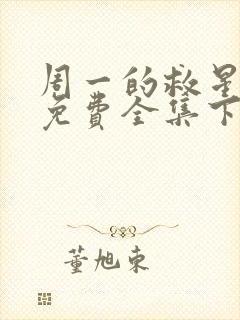 周一的救星
免费全集下
董旭东